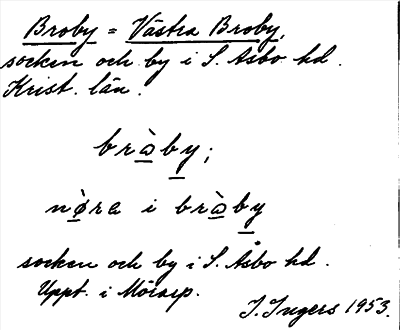 Broby = Västra Broby,
socken och by i S. Åsbo hd.
Krist. län.
bròby;
nø̀ra i bròby
socken och by i S. Åsbo hd.
Uppt. i Mörarp.
I. Ingers 1953.